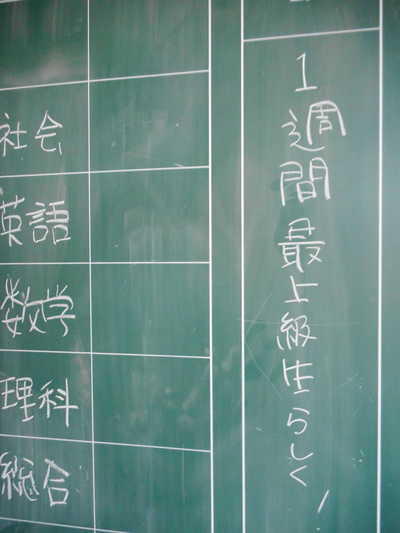 社会
英語
数学
理科
総合
1週間最上級生らしく!